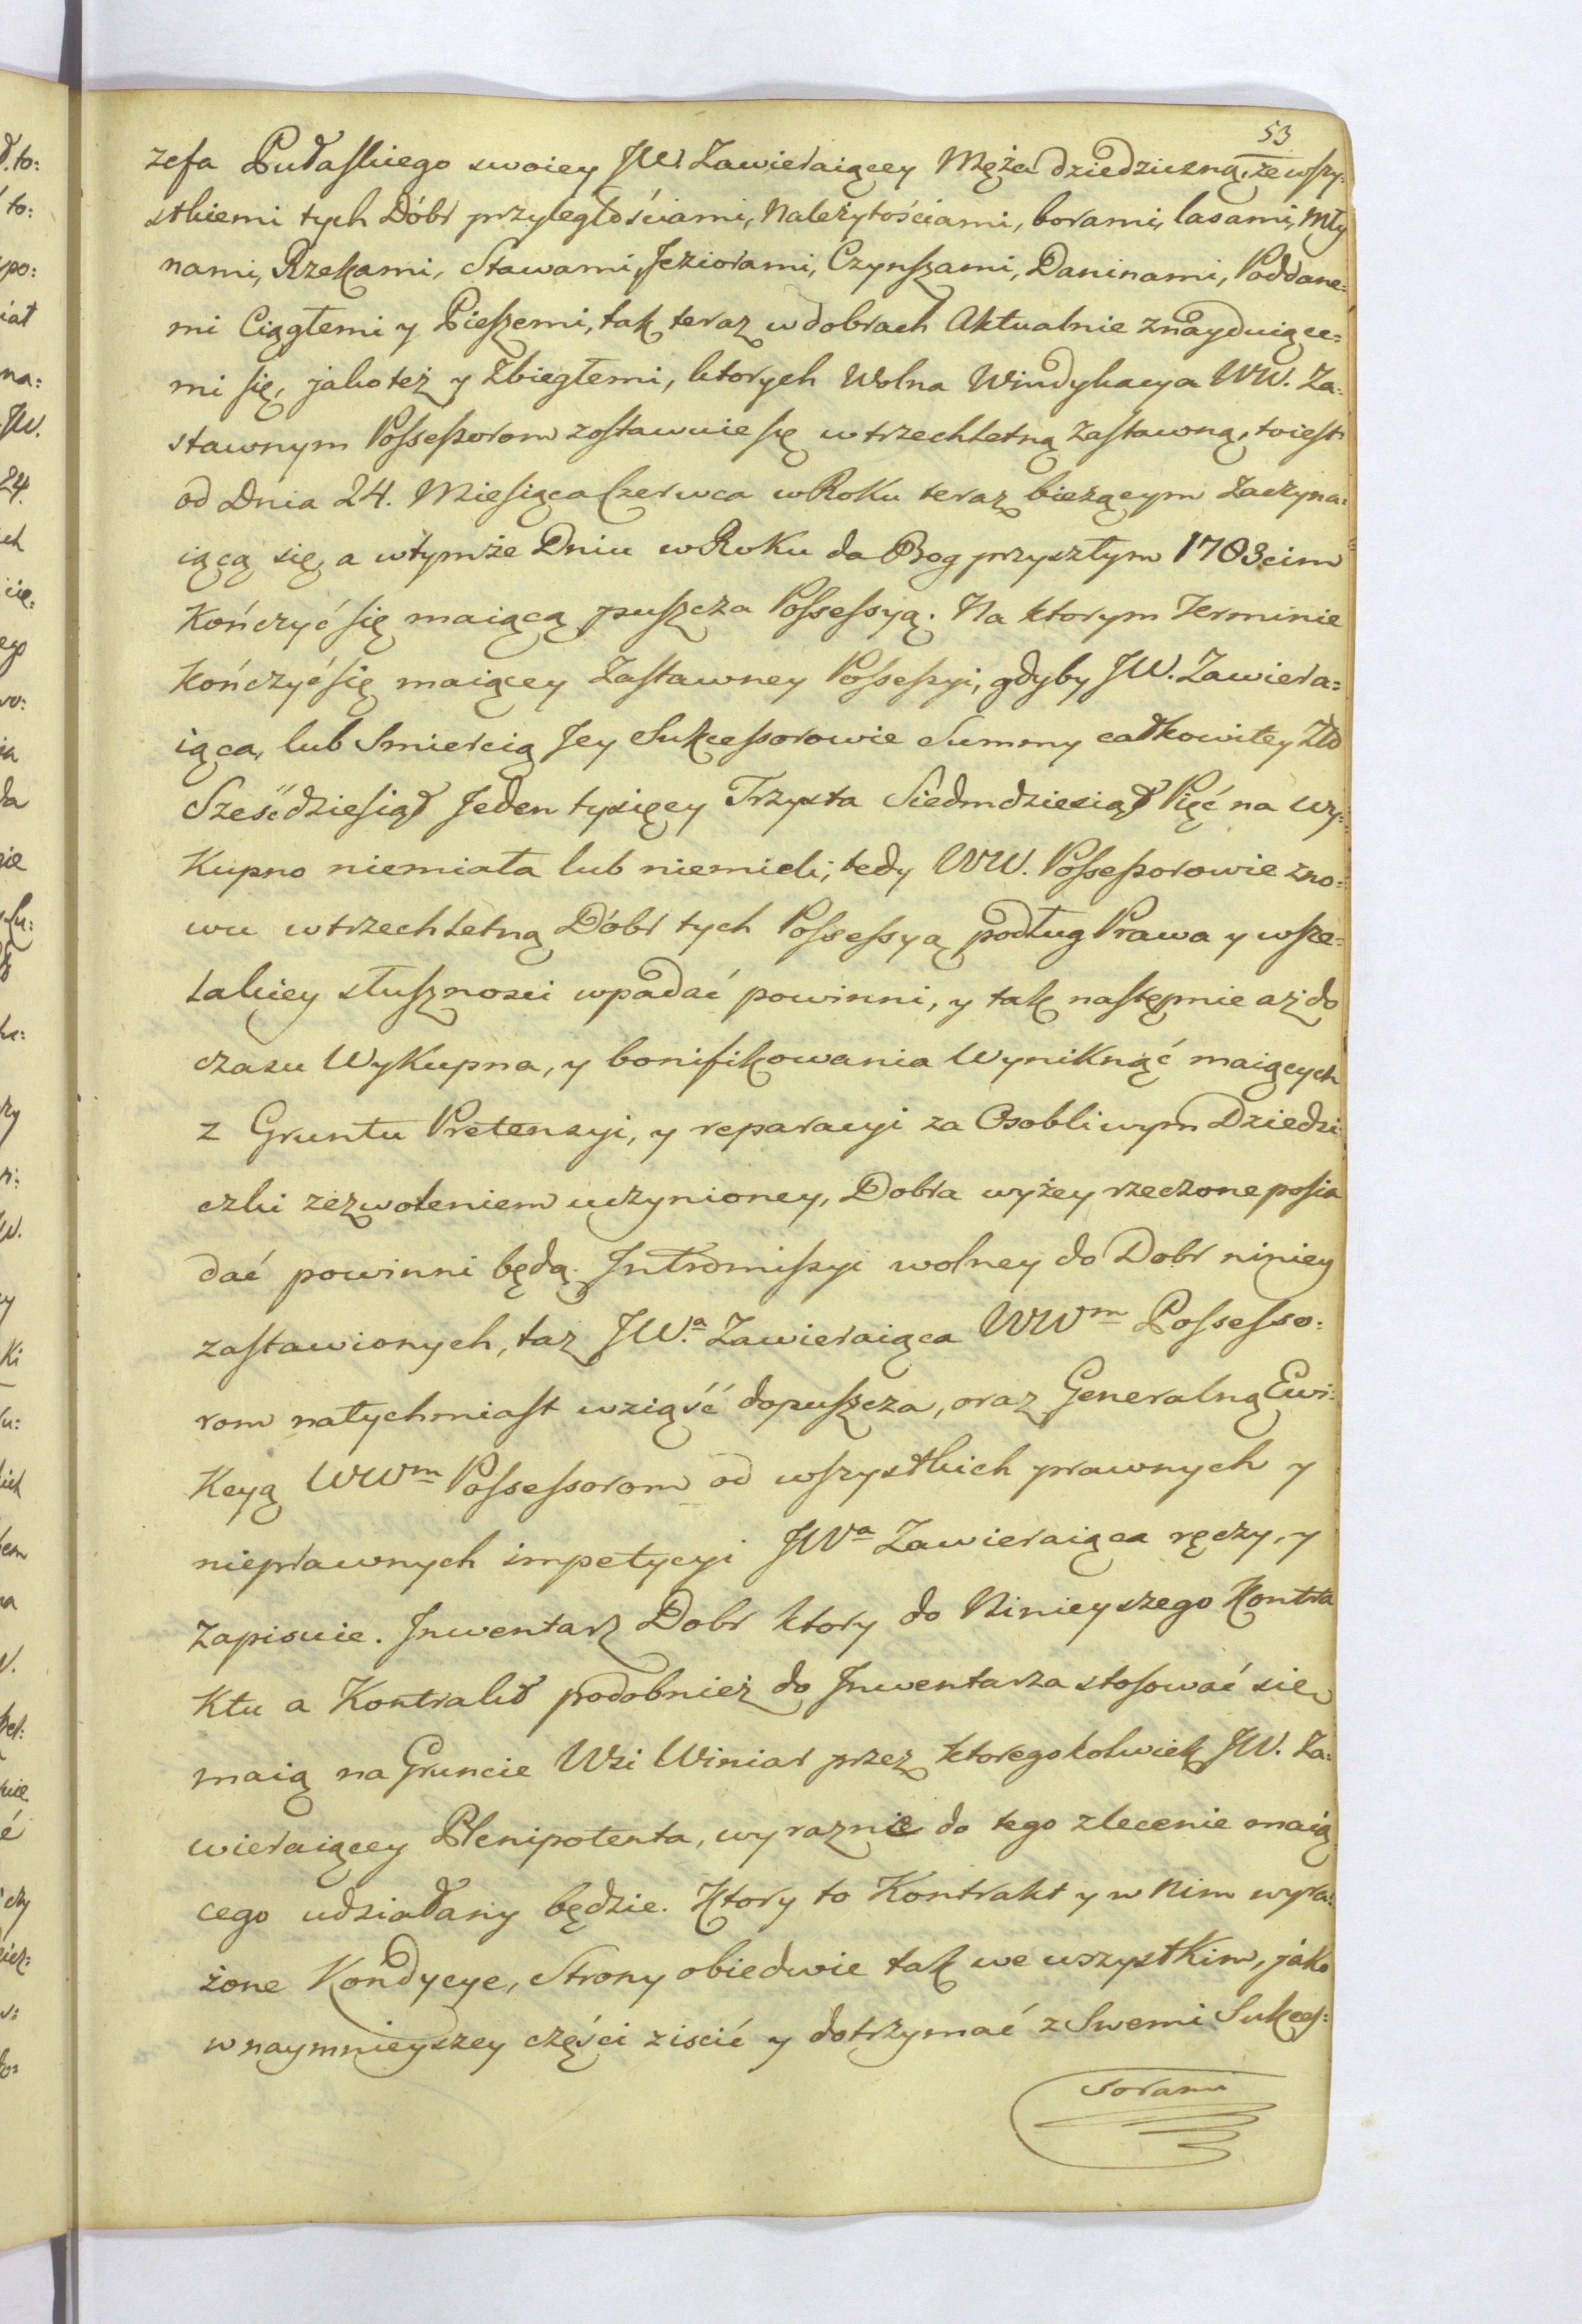 53
zefa Pułaskiego swoiey JW. Zawieraiącey Męża dziedziczną, ze wszy:
stkiemi tych Dóbr przyległościami, Należytościami, borami, lasami, Mły
nami, Rzekami, Stawami, Jeziorami, Czynszami, Daninami, Poddane=
mi Ciągłemi y Pieszemi, tak teraz w dobrach Aktualnie znayduiące=
mi się, jako też y Zbiegłemi, ktorych Wolna Windykacya WW. Za:
stawnym Possessorom zostawuie się w trzechletną zastawną, to iest:
od Dnia 24. Miesiąca Czerwca w Roku teraz bieżącym Zaczyna:
iącą się, a w tymże Dniu w Roku da Bog przyszłym 1783cim
Kończyć się maiącą puszcza Possessyą. Na ktorym Terminie
Kończyć się maiącey Zastawney Possessyi, gdyby JW. Zawiera=
iąca, lub Smiercią Jey Sukcessorowie Summy całkowitey Złł
Sześćdziesiąt Jeden tysięcy Trzysta Siedmdziesiąt Pięć na wy:
Kupno niemiała lub niemieli; tedy WW. Possessorowie zno:
wu w trzechletną Dóbr tych Possessyą podług Prawa y wsze=
lakiey słusznosci wpadać powinni, y tak następnie aż do
czasu Wykupna, y bonifikowania Wyniknąć maiących
z Gruntu Pretensyi, y reparacyi za Osobliwym Dziedzi
czki zezwoleniem uczynioney, Dobra wyżey rzeczone posia
dać powinni będą. Intromissyi wolney do Dobr niniey
zastawionych, taz JW.a Zawieraiąca WWm Possesso:
rom natychmiast wziąść dopuszcza, oraz Generalną Ewi:
Kcyą WWm Possessorom od wszystkich prawnych y
nieprawnych impetycyi JWa Zawieraiąca ręczy, y
Zapisuie. Inwentarz Dobr ktory do Ninieyszego Kontra
Ktu a Kontrakt podobnież do Inwentarza stosować się
maią na Gruncie Wsi Winiar przez ktoregokolwiek JW. Za:
wieraiącey Plenipotenta, wyraznie do tego zlecenie maią
cego udziałany będzie. Ktory to Kontrakt y w Nim wyra:
żone Kondycye, Strony obiedwie tak we wszystkim, jako
w naymnieyszey części ziscić y dotrzymać z Swemi Sukces:
sorami